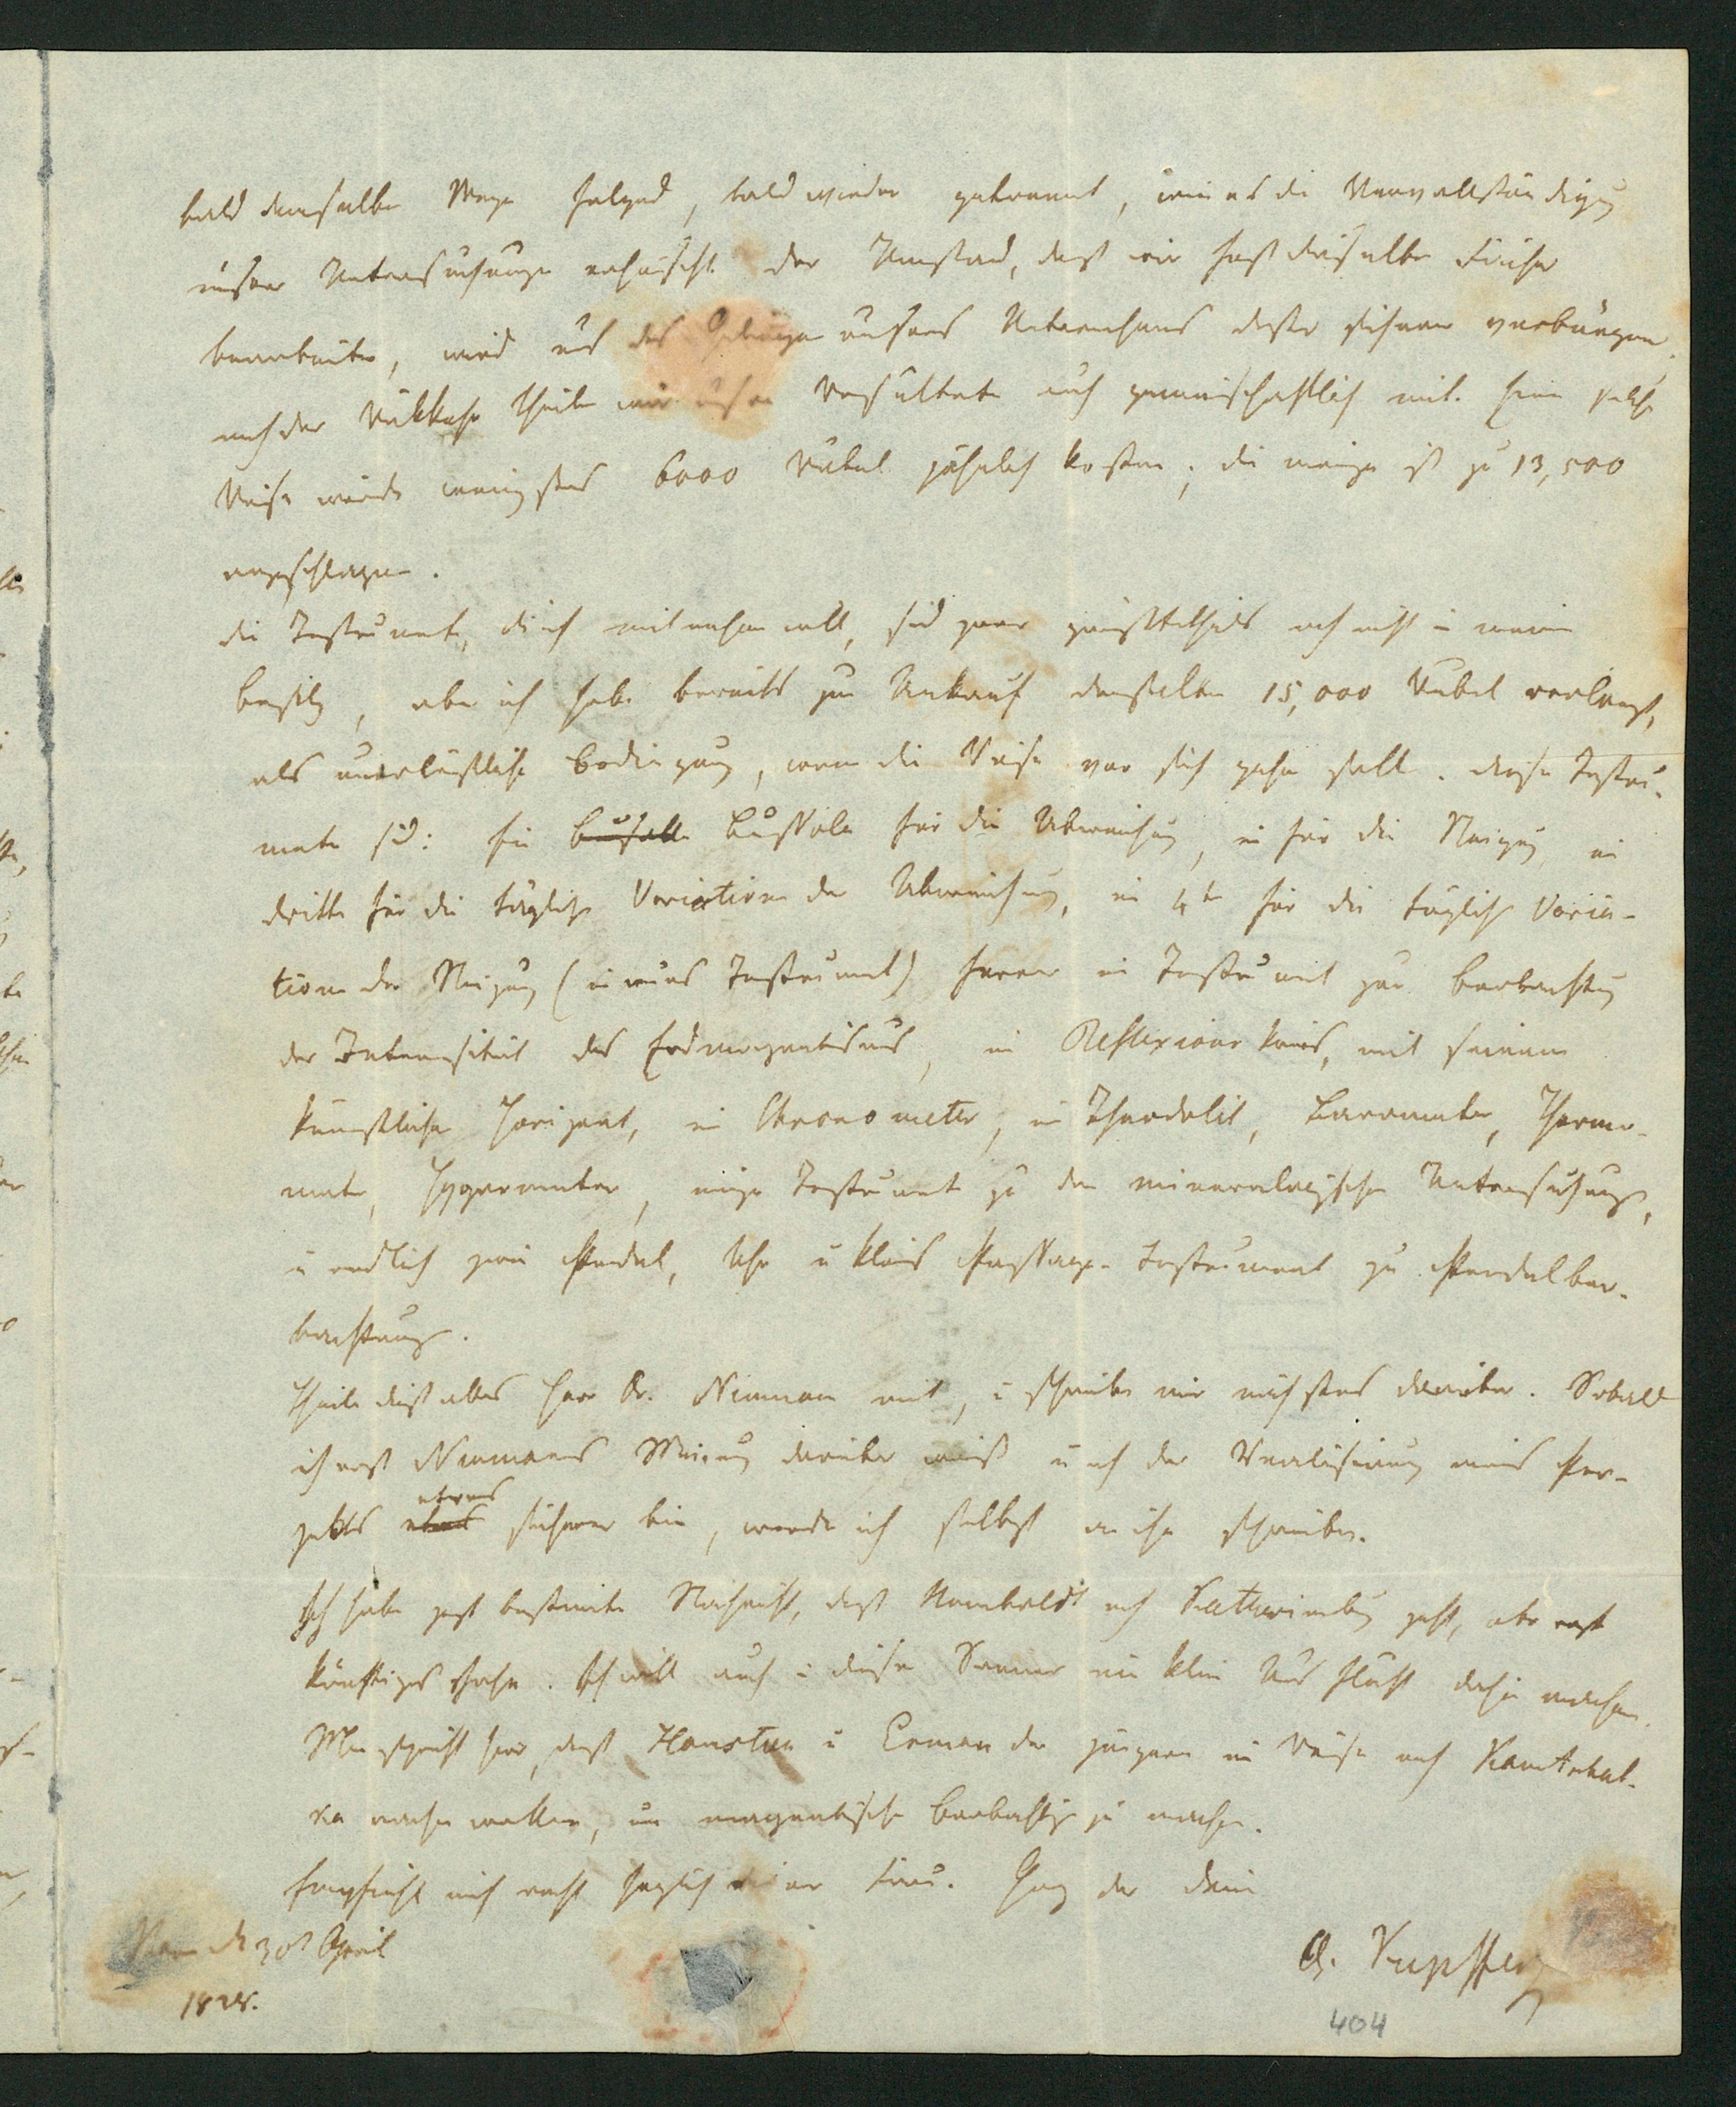 bald denselben Wege folgend, bald wieder getrennt, wie es die Vervollständigung
unserer Untersuchungen erheischt. Der Umstand, daß wir fast dieselben Fächer
bearbeiten, wird uns das Gelingen unseres Unternehmens desto sicherer verbürgen.
nach der Rükkehr theilen wir unsere Resultate auch gemeinschaftlich mit. Eine solche
Reise würde wenigstens 6000 Rubel jährlich kosten; die meinige ist zu 13,500
angeschlagen.
Die Instrumente, die ich mitnehmen will, sind zwar größtentheils noch nicht in meinem
Besitz, aber ich habe bereits zum Ankauf derselben 15,000 Rubel verlangt,
als unerläßliche Bedingung, wenn die Reise vor sich gehen soll. Diese Instru-
mente sind: Eine Bussole für die Abweichung, eine für die Neigung, eine
dritte für die tägliche Variation der Abweichung, eine 4te für die tägliche Varia-
tion der Neigung (ein neues Instrument) ferner ein Instrument zur Beobachtung
der Intensität des Erdmagnetismus, ein Reflexions kreis, mit seinem
künstlichen Horizont, ein Chronometer, ein Theodolit, Barometer, Thermo-
meter, Hygrometer, einige Instrumente zu den mineralogischen Untersuchungen,
u endlich zwei Pendel, Uhr u kleines Passage-Instrument zu Pendelbeo-
bachtungen.
Theile dieß alles Herr Dr. Neumann mit, u schreibe mir nächstens darüber. Sobald
ich erst Neumanns Meinung darüber weiß u ich der Realisirung meines Pro-
jekts etwas sicherer bin, werde ich selbst an ihn schreiben.
Ich habe jetzt bestimmte Nachricht, daß Humboldt nach Katharinenburg geht, aber erst
künftiges Jahr. Ich will auch in diesem Sommer einen kleinen Ausflucht dahin machen.
Man spricht hier, daß Hansteen u Erman der jüngere eine Reise nach Kamtschat-
ka machen wollen, um magnetische Beobachtungen zu machen.
Empfiehl mich recht herzlich deiner Frau. Ganz der Deine
A. Kupffer
Kasan d. 30t April
1828.
404